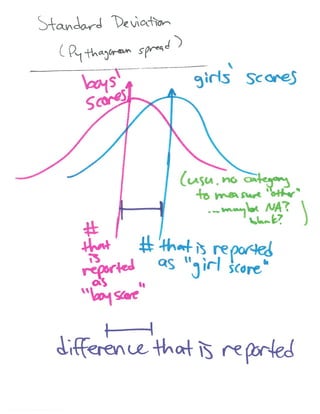 Standard Deviation
(Pythagorean spread)
boys'
scores
girls' scores
(usu. no category
to measure "other"
... maybe NA?
blank?
)
#
that
is
reported
as
"boy score"
# that is reported
as "girl score"
difference that is reported